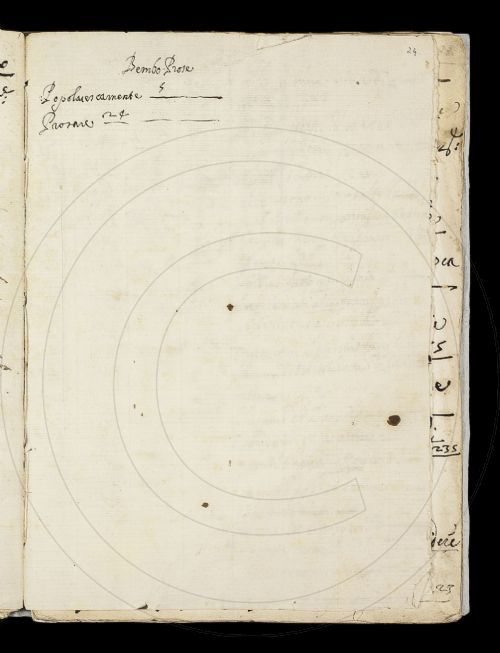 24
Bembo Prose
Popolarescamente 5
Prosare 24
235
23